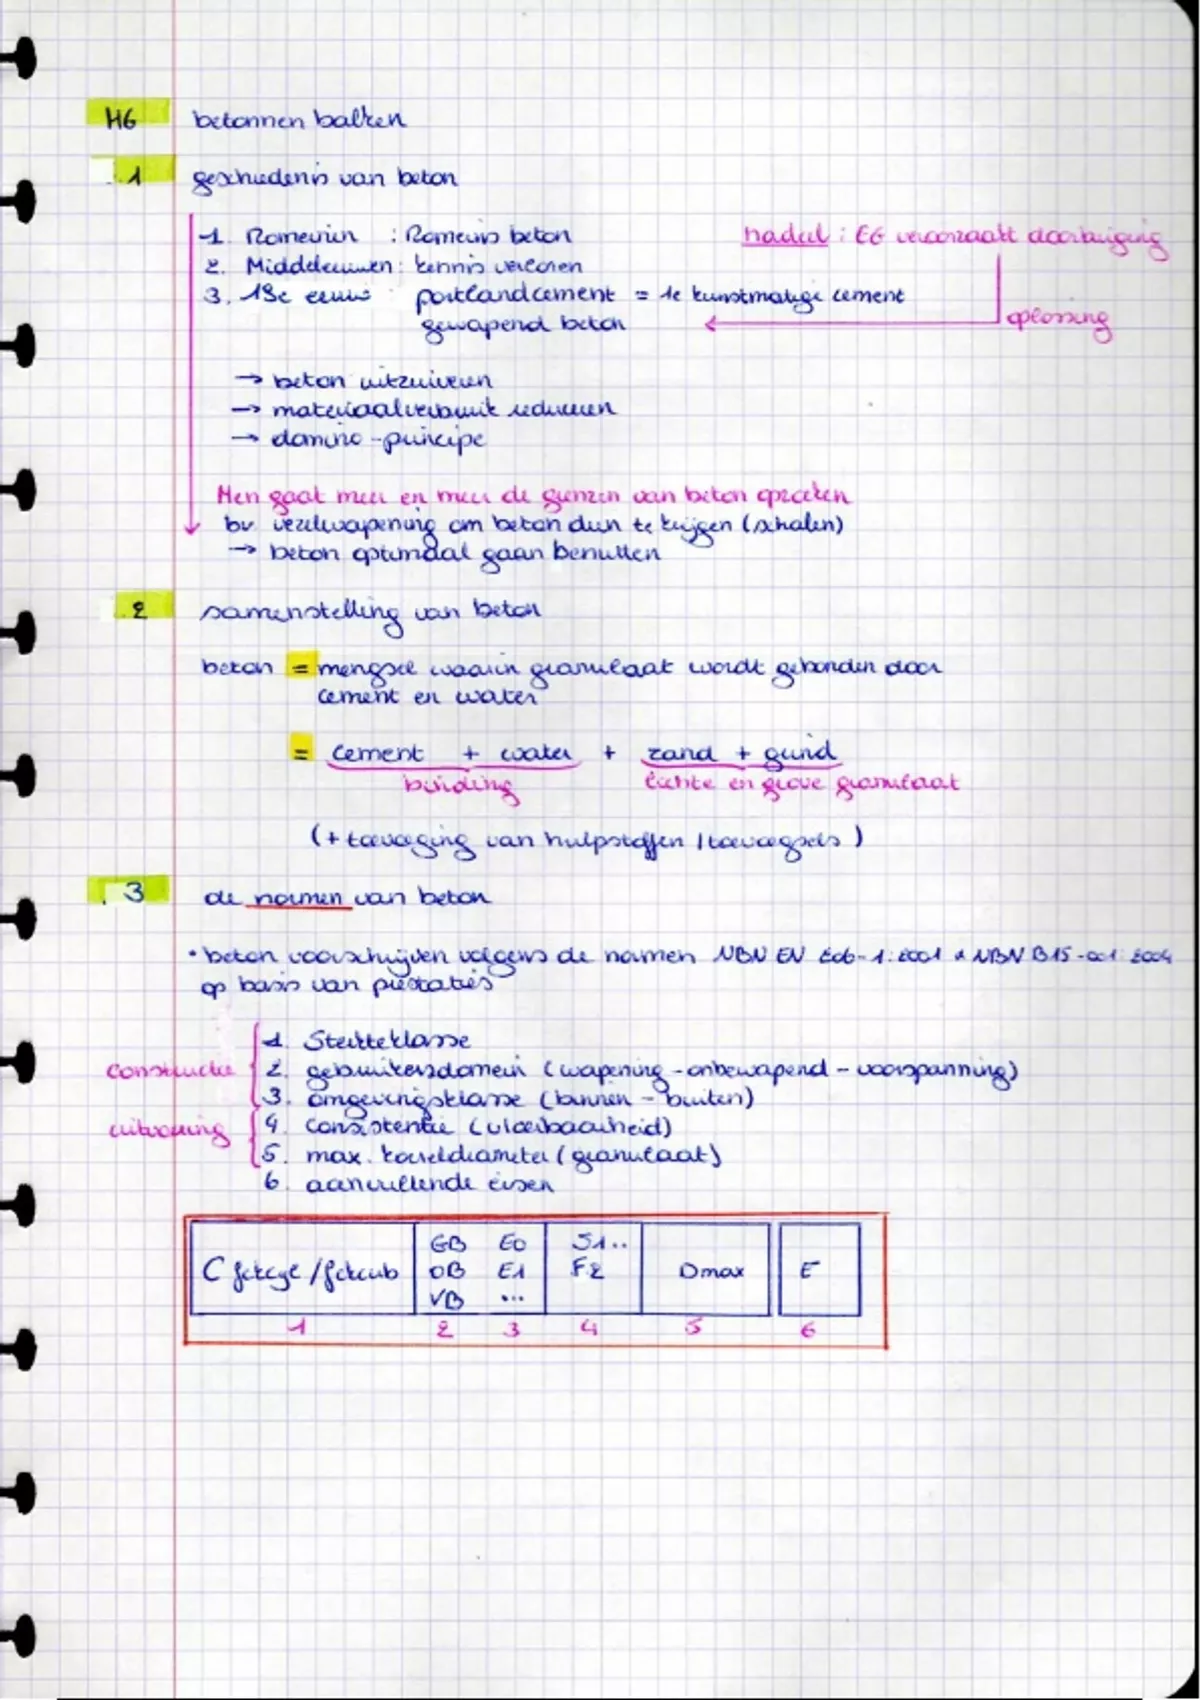 H6 betonnen balken
.1 geschiedenis van beton
1. Romeinen : Romeins beton
nadeel : EG veroorzaakt doorbuiging
2. Middeleeuwen : kennis verloren
3. 19e eeuw : portlandcement = 1e kunstmatige cement
gewapend beton
oplossing
→ beton uitzuiveren
→ materiaalverbruik reduceren
→ domino-principe
Men gaat meer en meer de grenzen van beton opzoeken
bv. vezelwapening om beton dun te krijgen (schalen)
→ beton optimaal gaan benutten
.2 samenstelling van beton
beton = mengsel waarin granulaat wordt gebonden door
cement en water
= cement + water + zand + grind
binding
lichte en grove granulaat
(+ toevoeging van hulpstoffen / toevoegsels )
.3 de normen van beton
• beton voorschrijven volgens de normen NBN EN 206-1:2001 & NBN B15-001:2004
op basis van prestaties
1. Sterkteklasse
constructie 2. gebruikersdomein (wapening - onbewapend - voorspanning)
3. omgevingsklasse (binnen - buiten)
uitvoering 4. consistentie (vloeibaarheid)
5. max. korreldiameter (granulaat)
6. aanvullende eisen
GB E0 S1..
C fckcyl / fckcub OB E1 F2 Dmax E
VB ...
1 2 3 4 5 6